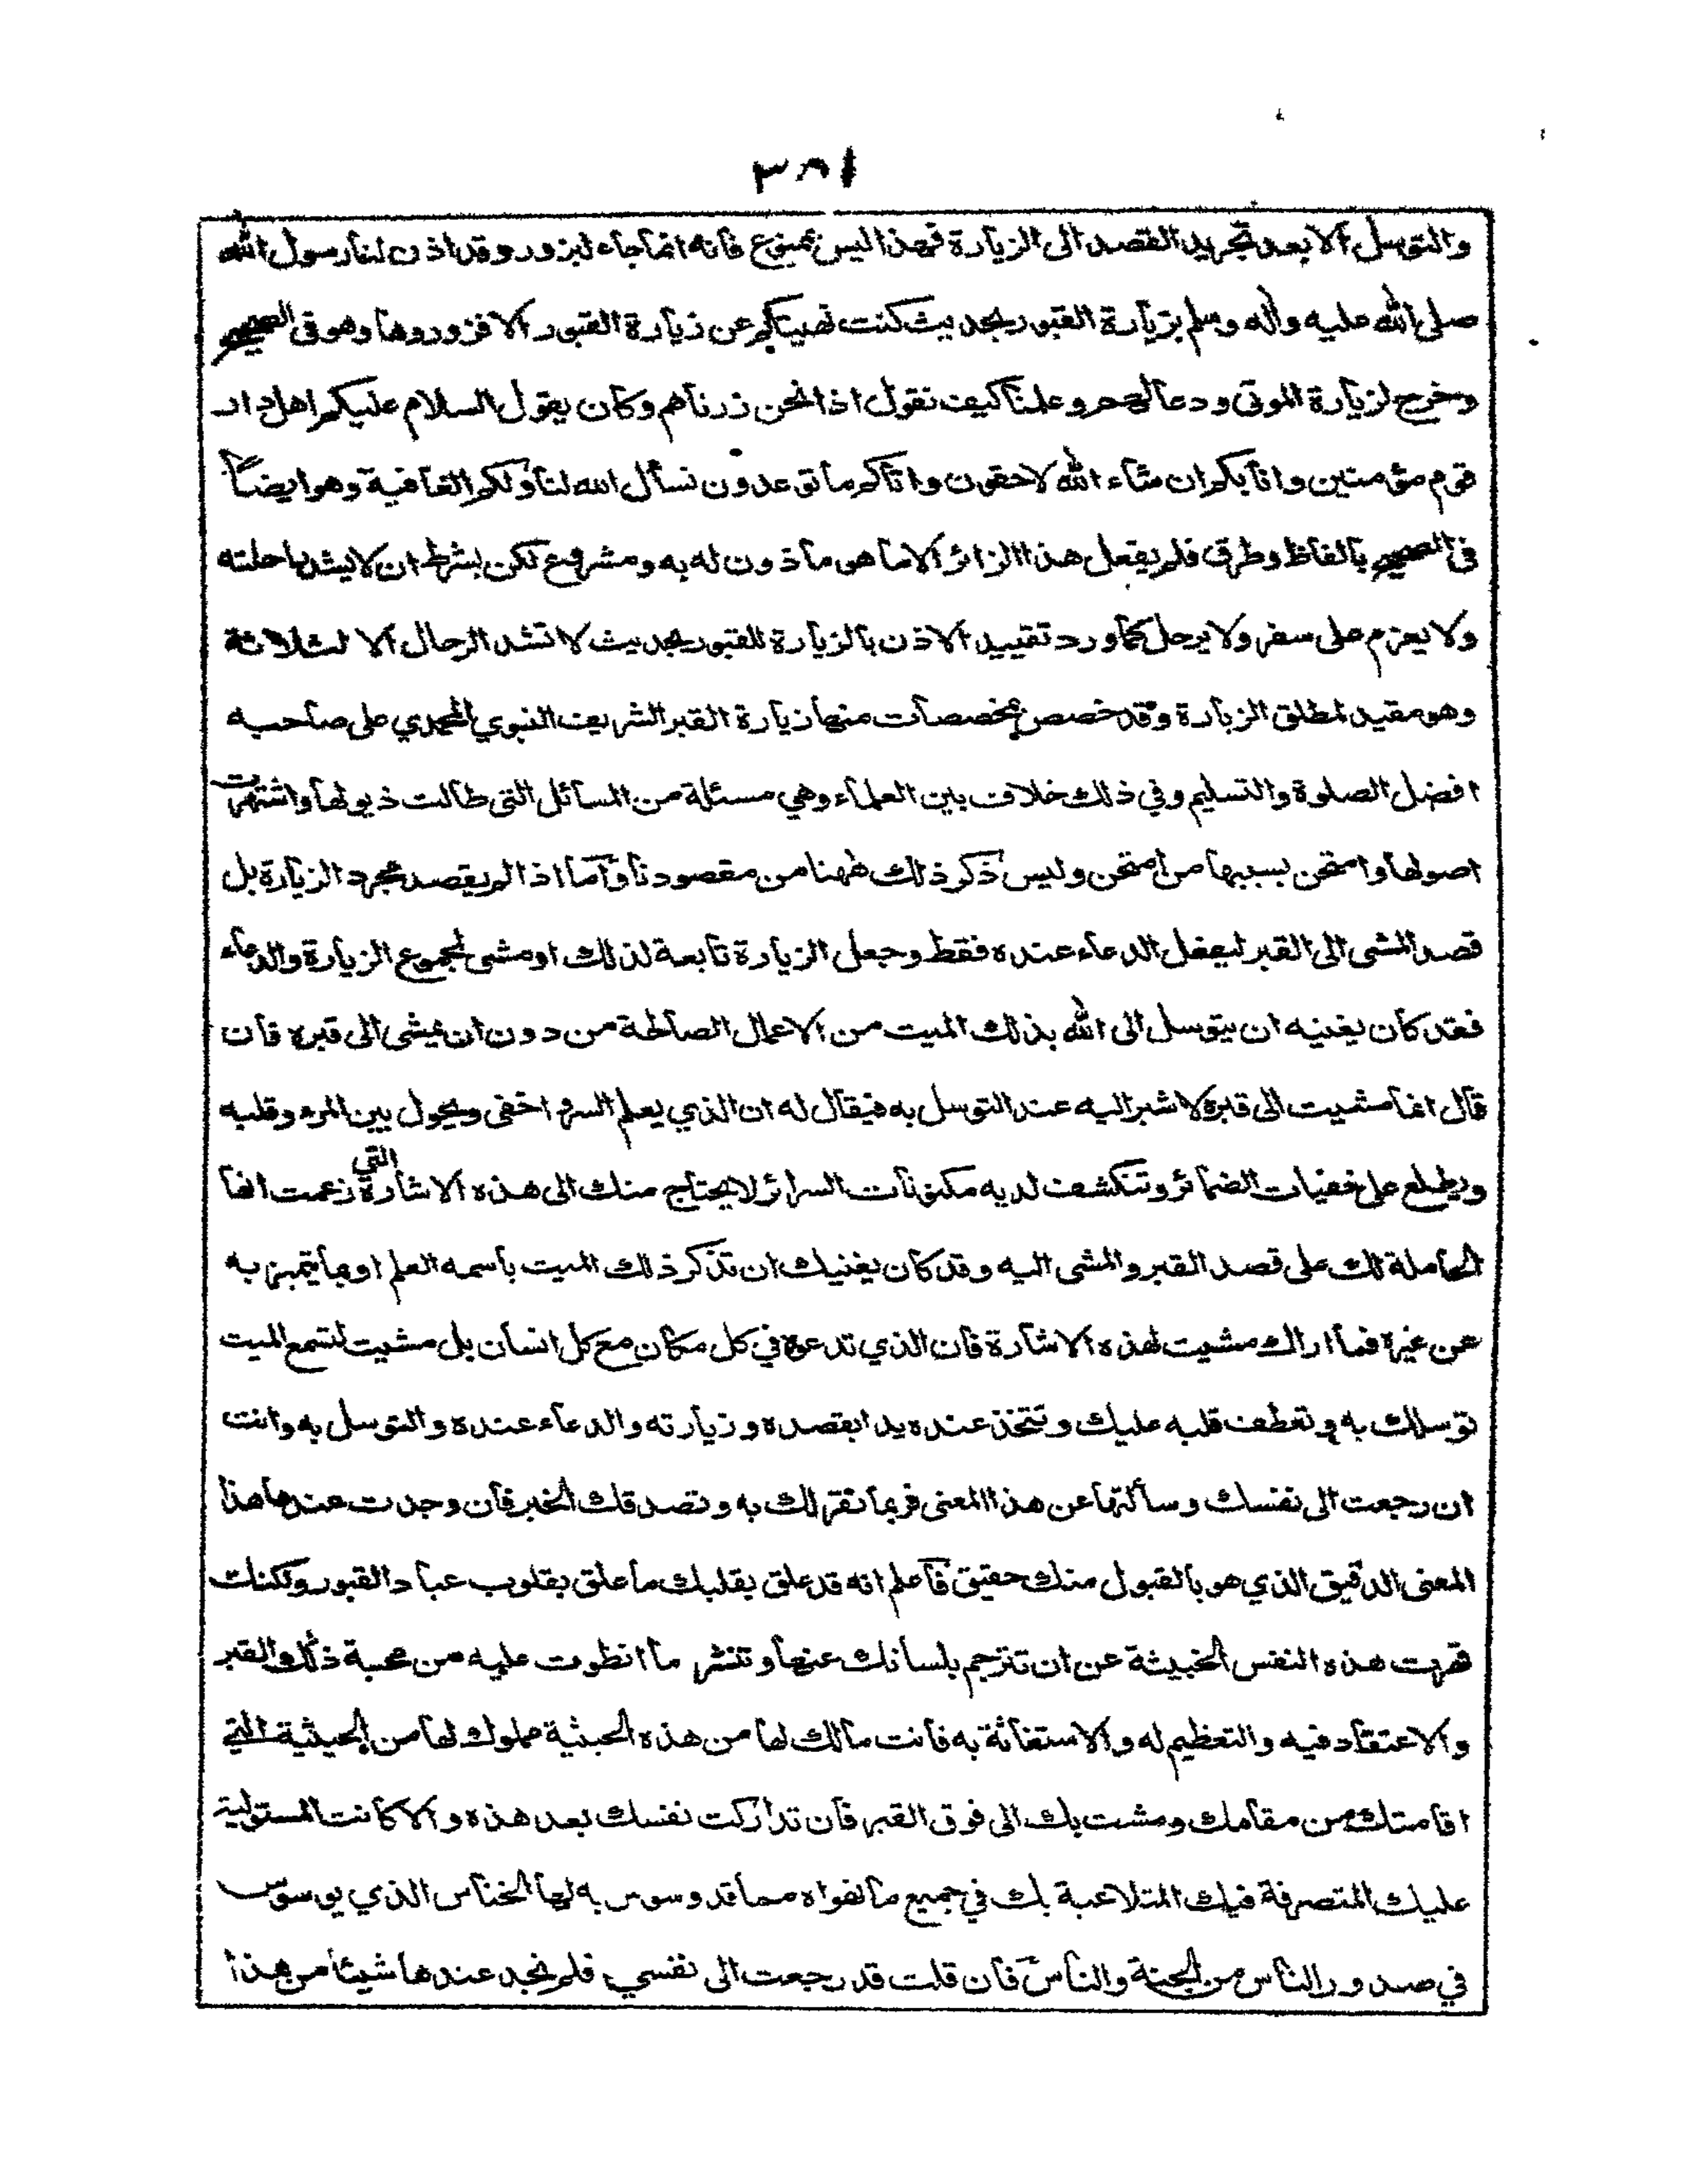 ٣٨١
والتوسل الا بعد تجريد القصد الى الزيارة فهذا ليس بممنوع فانه انما جاء ليزور وقد اذن لنا رسول الله
صلى الله عليه واله وسلم بزيارة القبور بحديث كنت نهيتكم عن زيارة القبور الا فزوروها وهو فى الصحيح
وخرج لزيارة الموتى ودعا لهم وعلمنا كيف نقول اذا نحن زرناهم وكان يقول السلام عليكم اهل دار
قوم مؤمنين وانا بكم ان شاء الله لاحقون واتاكم ما توعدون نسأل الله لنا ولكم العافية وهو ايضاً
فى الصحيح بالفاظ وطرق فلم يفعل هذا الزائر الا ما هو ماذون له به ومشروع لكن بشرط ان لا يشد راحلته
ولا يعزم على سفر ولا يرحل كما ورد تقييد الاذن بالزيارة للقبور بحديث لا تشد الرحال الا لثلاثة
وهو مقيد لمطلق الزيارة وقد خصص بمخصصات منها زيارة القبر الشريف النبوي المحمدي على صاحبه
افضل الصلوة والتسليم وفي ذلك خلاف بين العلماء وهي مسئلة من المسائل التى طالت ذيولها واشتهرت
اصولها وامتحن بسببها من امتحن وليس ذكر ذلك ههنا من مقصودنا واما اذا لم يقصد مجرد الزيارة بل
قصد المشى الى القبر ليفعل الدعاء عنده فقط وجعل الزيارة تابعة لذلك او مشى لمجموع الزيارة والدعاء
فقد كان يغنيه ان يتوسل الى الله بذلك الميت من الاعمال الصالحة من دون ان يمشى الى قبره فان
قال انما مشيت الى قبره لاشير اليه عند التوسل به فيقال له ان الذي يعلم السر واخفى ويحول بين المرء وقلبه
ويطلع على خفيات الضمائر وتنكشف لديه مكنونات السرائر لا يحتاج منك الى هذه الاشارة التي زعمت انها
الحاملة لك على قصد القبر والمشى اليه وقد كان يغنيك ان تذكر ذلك الميت باسمه العلم او بما يتميز به
عن غيره فما اراك مشيت لهذه الاشارة فان الذي تدعوه في كل مكان مع كل انسان بل مشيت لتسمع الميت
توسلك به وتعطف قلبه عليك وتتخذ عنده يدا بقصده وزيارته والدعاء عنده والتوسل به وانت
ان رجعت الى نفسك وسألتها عن هذا المعنى فربما تقر لك به وتصدقك الخبر فان وجدت عندها هذا
المعنى الدقيق الذي هو بالقبول منك حقيق فاعلم انه قد علق بقلبك ما علق بقلوب عباد القبور ولكنك
قهرت هذه النفس الخبيثة عن ان تترجم بلسانك عنها وتنشر ما انطوت عليه من محبة ذلك القبر
والاعتقاد فيه والتعظيم له والاستغاثة به فانت مالك لها من هذه الحيثية مملوك لها من الحيثية التي
اقامتك من مقامك ومشت بك الى فوق القبر فان تداركت نفسك بعد هذه والا كانت المستولية
عليك المتصرفة فيك المتلاعبة بك في جميع ما تهواه مما قد وسوس به لها الخناس الذي يوسوس
في صدور الناس من الجنة والناس فان قلت قد رجعت الى نفسي فلم نجد عندها شيئا من هذا